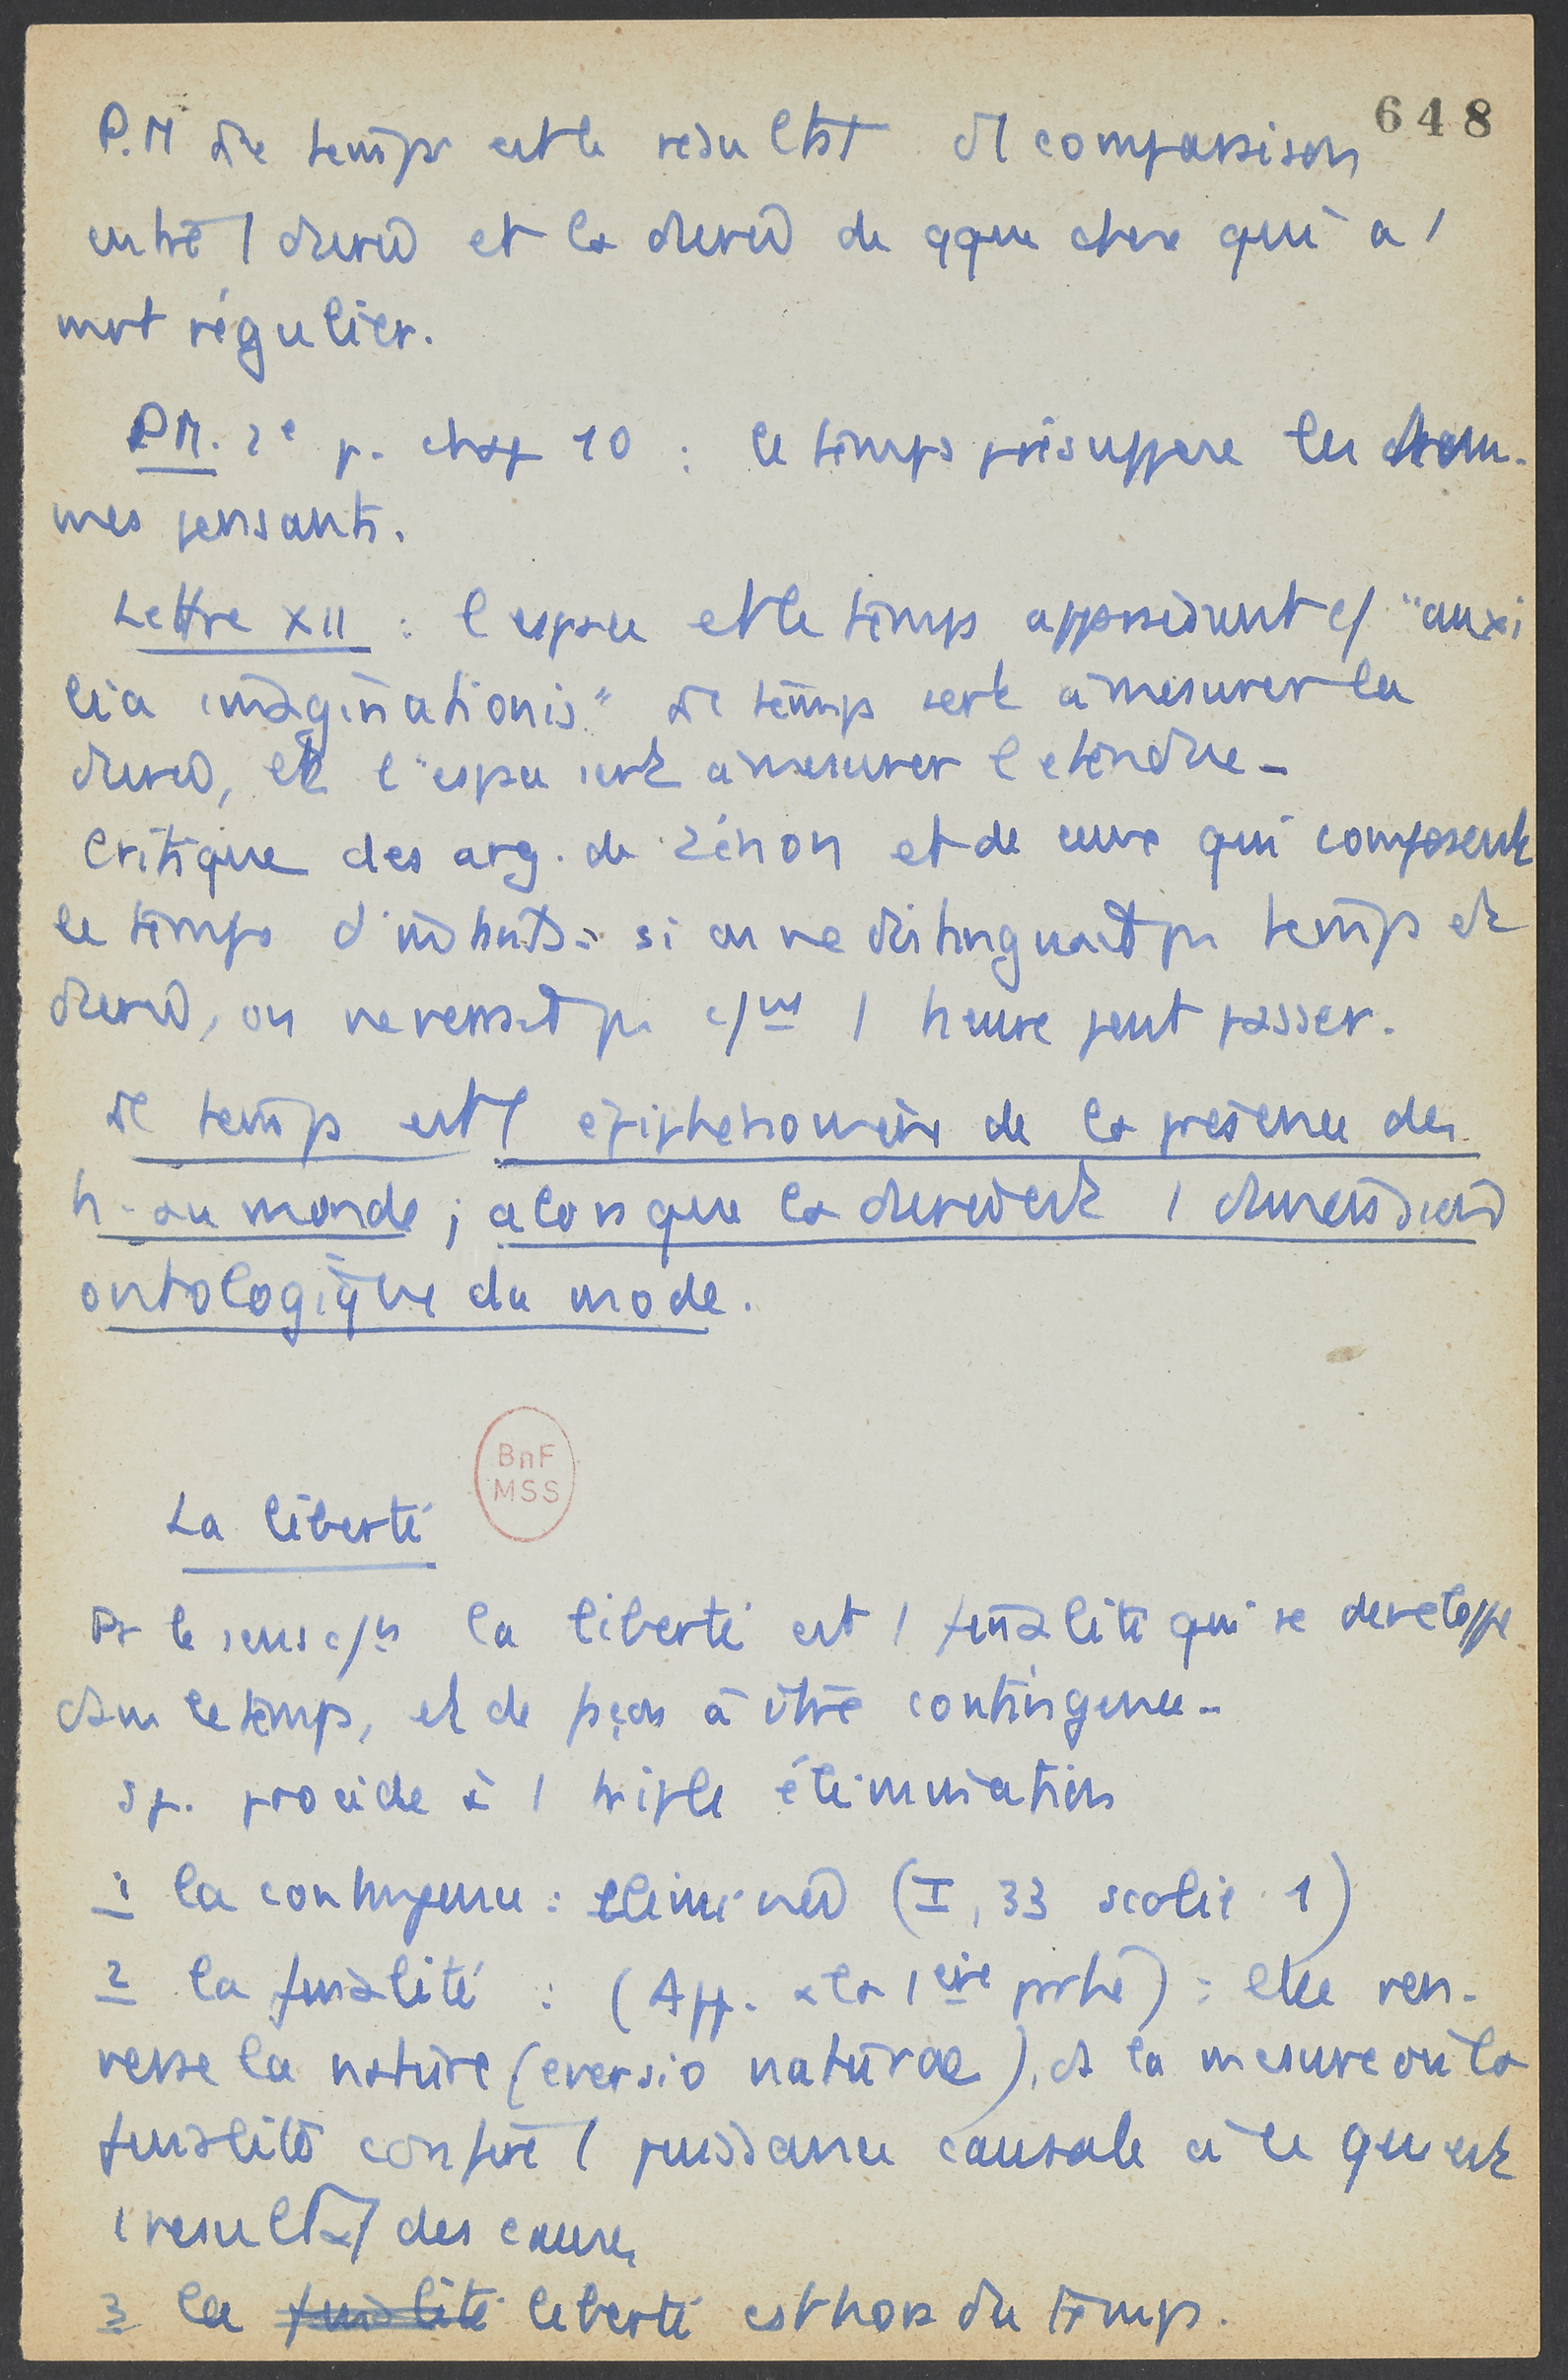 648
P.M Le temps est le résultat d'1 comparaison
entre 1 durée et la durée de qque chose qui a 1
mvt régulier.
P.M. 2e p. chap 10 : le temps présuppose les hom-
mes pensants.
Lettre XII : l'espace et le temps apparaissent c/ "auxi
lia imaginationis" Le temps sert à mesurer la
durée, et l'espace sert à mesurer l'étendue-
Critique des arg. de Zénon et de ceux qui composent
le temps d'instants : si on ne distinguait pas temps et
durée, on ne verrait pas c/nt 1 heure peut passer.
Le temps est l'épiphénomène de la présence des
h. au monde ; alors que la durée est 1 dimension
ontologique du mode.
BnF
MSS
La liberté
Pr le sens c/n la liberté est 1 finalité qui se développe
dans le temps, et de façon à être contingence-
Sp. procède à 1 triple élimination
1 la contingence : éliminée (I, 33 scolie 1)
2 la finalité : (App. à la 1ère partie) : elle ren-
verse la nature (eversio naturae), ds la mesure où la
finalité confère 1 puissance causale à ce qui est
1 résultat des causes
3 la finalité liberté est hors du temps.